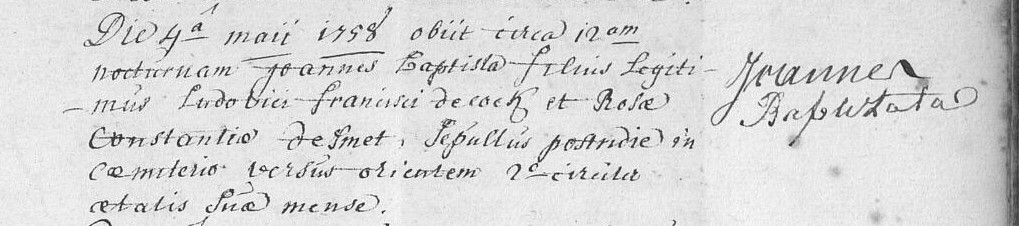 Die 4â maii 1758 obiit circa 12am
nocturnam Joannes Baptista filius legiti-
-mus Ludovici francisci de cock et Rosæ
Constantiæ desmet, sepultus postridie in
cœmiterio versus orientem 2o circiter
ætatis suæ mense.
Joannes
Baptista